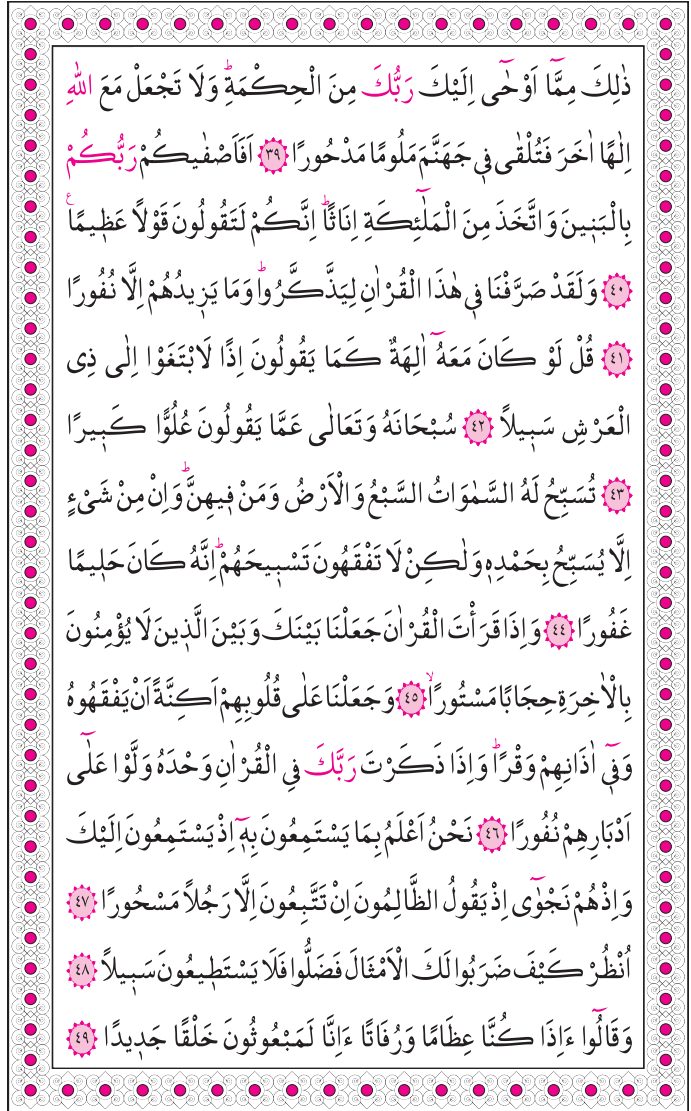 ذٰلِكَ مِمَّٓا اَوْحٰٓى اِلَيْكَ رَبُّكَ مِنَ الْحِكْمَةِۜ وَلَا تَجْعَلْ مَعَ اللّٰهِ
اِلٰهًا اٰخَرَ فَتُلْقٰى ف۪ي جَهَنَّمَ مَلُومًا مَدْحُورًا ﴿٣٩﴾ اَفَاَصْفٰيكُمْ رَبُّكُمْ
بِالْبَن۪ينَ وَاتَّخَذَ مِنَ الْمَلٰٓئِكَةِ اِنَاثًاۜ اِنَّكُمْ لَتَقُولُونَ قَوْلًا عَظ۪يمًا ع
﴿٤٠﴾ وَلَقَدْ صَرَّفْنَا ف۪ي هٰذَا الْقُرْاٰنِ لِيَذَّكَّرُواۜ وَمَا يَز۪يدُهُمْ اِلَّا نُفُورًا
﴿٤١﴾ قُلْ لَوْ كَانَ مَعَهُٓ اٰلِهَةٌ كَمَا يَقُولُونَ اِذًا لَابْتَغَوْا اِلٰى ذِي
الْعَرْشِ سَب۪يلًا ﴿٤٢﴾ سُبْحَانَهُ وَتَعَالٰى عَمَّا يَقُولُونَ عُلُوًّا كَب۪يرًا
﴿٤٣﴾ تُسَبِّحُ لَهُ السَّمٰوَاتُ السَّبْعُ وَالْاَرْضُ وَمَنْ ف۪يهِنَّۜ وَاِنْ مِنْ شَيْءٍ
اِلَّا يُسَبِّحُ بِحَمْدِه۪ وَلٰكِنْ لَا تَفْقَهُونَ تَسْب۪يحَهُمْۜ اِنَّهُ كَانَ حَل۪يمًا
غَفُورًا ﴿٤٤﴾ وَاِذَا قَرَأْتَ الْقُرْاٰنَ جَعَلْنَا بَيْنَكَ وَبَيْنَ الَّذ۪ينَ لَا يُؤْمِنُونَ
بِالْاٰخِرَةِ حِجَابًا مَسْتُورًاۙ ﴿٤٥﴾ وَجَعَلْنَا عَلٰى قُلُوبِهِمْ اَكِنَّةً اَنْ يَفْقَهُوهُ
وَف۪ٓي اٰذَانِهِمْ وَقْرًاۜ وَاِذَا ذَكَرْتَ رَبَّكَ فِي الْقُرْاٰنِ وَحْدَهُ وَلَّوْا عَلٰٓى
اَدْبَارِهِمْ نُفُورًا ﴿٤٦﴾ نَحْنُ اَعْلَمُ بِمَا يَسْتَمِعُونَ بِه۪ٓ اِذْ يَسْتَمِعُونَ اِلَيْكَ
وَاِذْ هُمْ نَجْوٰٓى اِذْ يَقُولُ الظَّالِمُونَ اِنْ تَتَّبِعُونَ اِلَّا رَجُلًا مَسْحُورًا ﴿٤٧﴾
اُنْظُرْ كَيْفَ ضَرَبُوا لَكَ الْاَمْثَالَ فَضَلُّوا فَلَا يَسْتَط۪يعُونَ سَب۪يلًا ﴿٤٨﴾
وَقَالُٓوا ءَاِذَا كُنَّا عِظَامًا وَرُفَاتًا ءَاِنَّا لَمَبْعُوثُونَ خَلْقًا جَد۪يدًا ﴿٤٩﴾